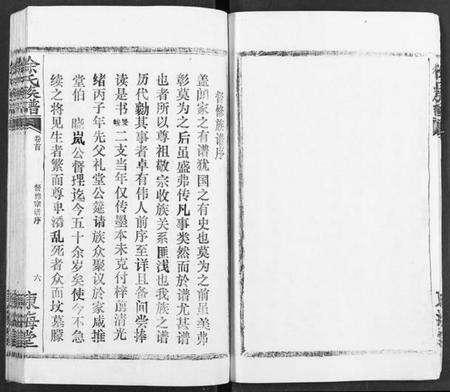 督修族谱序
盖闻家之有谱犹国之有史也莫为之前虽美弗
彰莫为之后虽盛弗传凡事类然而於谱尤甚谱
也者所以尊祖敬宗收族关系匪浅也我族之谱
历代勷其事者卓有伟人前序至详且备间尝捧
读是书 二支当年仅传墨本未克付梓前清光
绪丙子年先父礼堂公筵请族众聚议於家咸推
堂伯 晓岚公督理迄今五十余岁矣使今不急
续之将见生者繁而尊卑淆乱死者众而坟墓朦
徐氏族谱
卷首
督修宗谱序
六
东海堂